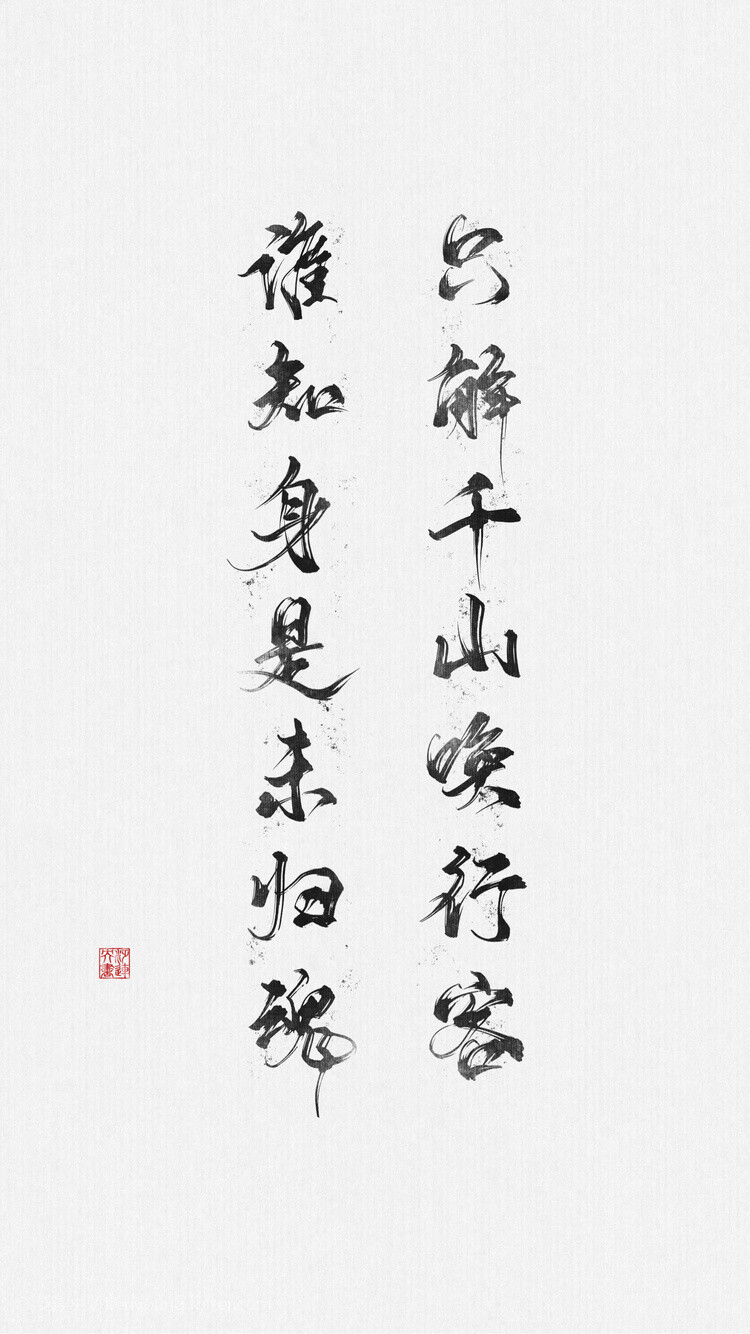 只解千山唤行客
谁知身是未归魂